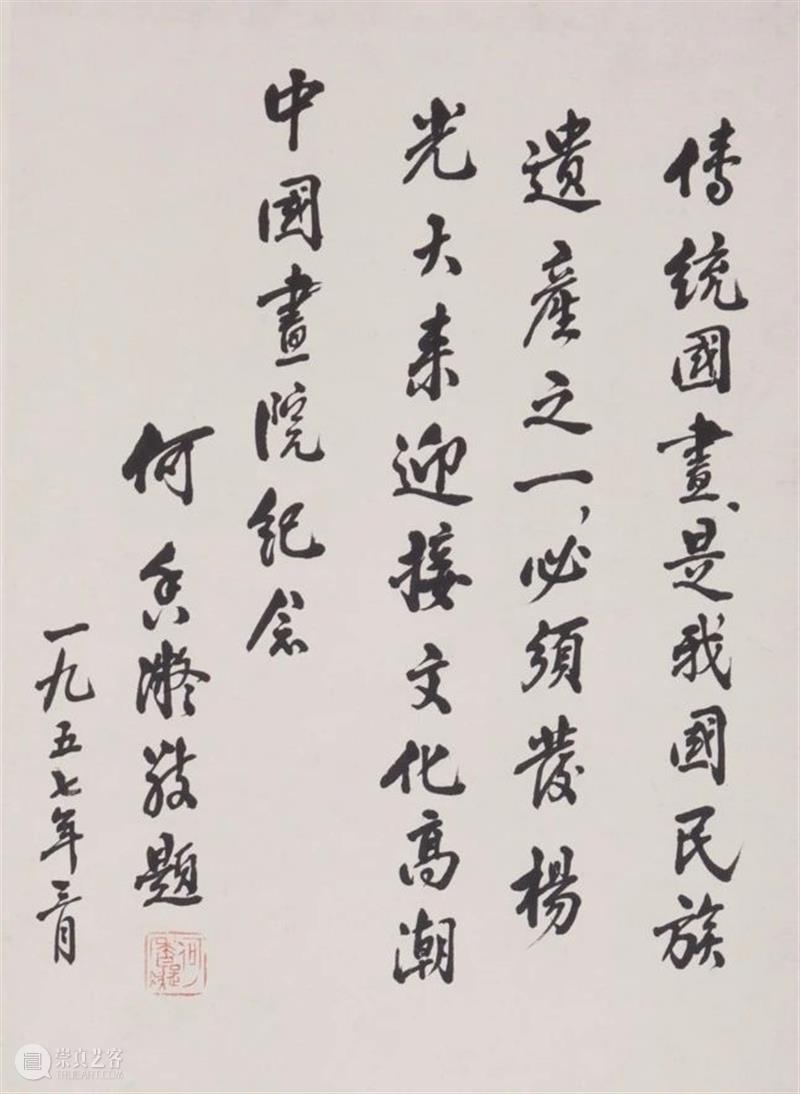 傳統國畫、是我國民族
遺產之一，必須發楊
光大来迎接文化高潮
中國畫院紀念
何香凝敬題
一九五七年三月
何香凝
崇真艺客
TRUEART.COM